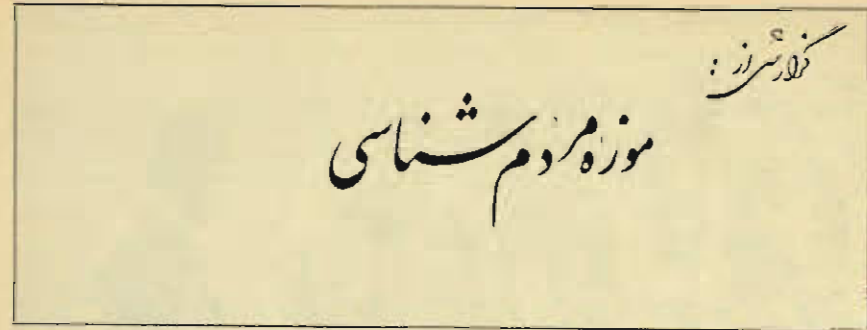 گزارشی از :
موزه مردم شناسی